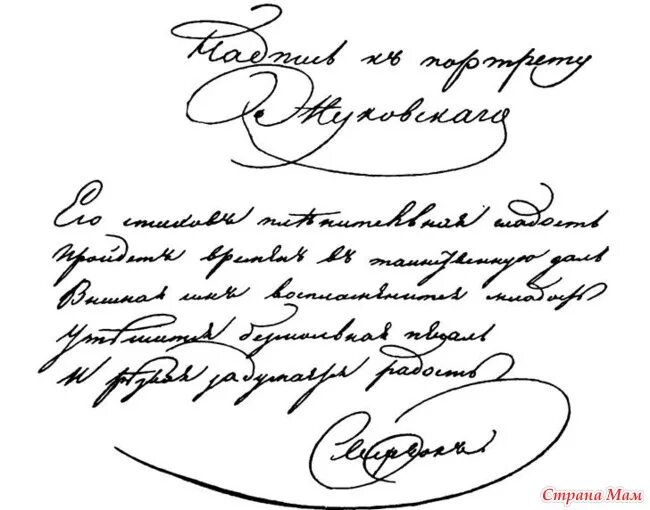 Надпись къ портрету
В. Жуковскаго
Его стиховъ плѣнительная сладость
Пройдетъ временъ въ таинственную даль
Внимая имъ воспламенится младость
Утѣшится безмолвная печаль
И рѣзвая задумается радость
Сверчокъ.
Страна Мам